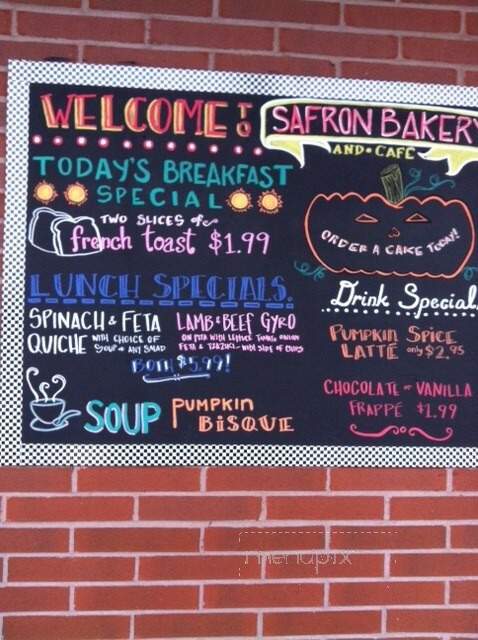 WELCOME TO
SAFRON BAKERY
AND • CAFÉ
TODAY'S BREAKFAST
SPECIAL
TWO SLICES of
french toast $1.99
ORDER A CAKE TODAY!
LUNCH SPECIALS.
SPINACH & FETA
QUICHE WITH CHOICE OF
SOUP or ANY SALAD
LAMB & BEEF GYRO
ON PITA WITH LETTUCE TOMATO ONION
FETA & TZATZIKI - WITH SIDE OF
BOTH $5.99!
Drink Special
PUMPKIN SPICE
LATTÉ only $2.95
CHOCOLATE or VANILLA
FRAPPÉ $1.99
SOUP PUMPKIN
BISQUE
menupix